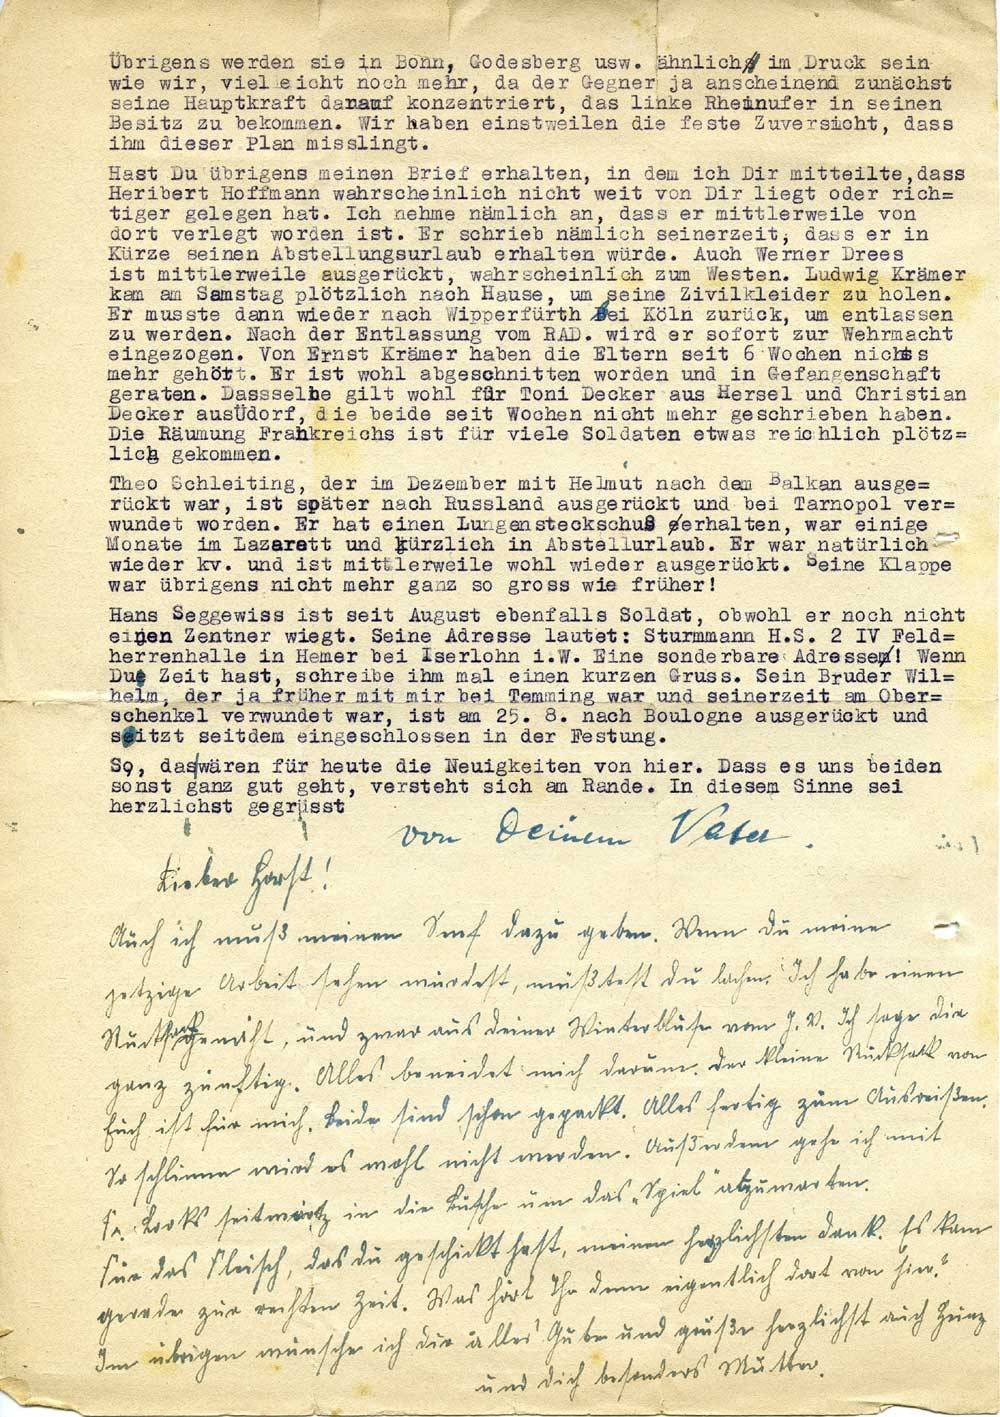 Übrigens werden sie in Bonn, Godesberg usw. ähnlich im Druck sein
wie wir, vielleicht noch mehr, da der Gegner ja anscheinend zunächst
seine Hauptkraft darauf konzentriert, das linke Rheinufer in seinen
Besitz zu bekommen. Wir haben einstweilen die feste Zuversicht, dass
ihm dieser Plan misslingt.
Hast Du übrigens meinen Brief erhalten, in dem ich Dir mitteilte,dass
Heribert Hoffmann wahrscheinlich nicht weit von Dir liegt oder rich=
tiger gelegen hat. Ich nehme nämlich an, dass er mittlerweile von
dort verlegt worden ist. Er schrieb nämlich seinerzeit, dass er in
Kürze seinen Abstellungsurlaub erhalten würde. Auch Werner Drees
ist mittlerweile ausgerückt, wahrscheinlich zum Westen. Ludwig Krämer
kam am Samstag plötzlich nach Hause, um seine Zivilkleider zu holen.
Er musste dann wieder nach Wipperfürth Bei Köln zurück, um entlassen
zu werden. Nach der Entlassung vom RAD. wird er sofort zur Wehrmacht
eingezogen. Von Ernst Krämer haben die Eltern seit 6 Wochen nichts
mehr gehört. Er ist wohl abgeschnitten worden und in Gefangenschaft
geraten. Dassselbe gilt wohl für Toni Decker aus Hersel und Christian
Decker ausÜdorf, die beide seit Wochen nicht mehr geschrieben haben.
Die Räumung Frankreichs ist für viele Soldaten etwas reichlich plötz=
lich gekommen.
Theo Schleiting, der im Dezember mit Helmut nach dem Balkan ausge=
rückt war, ist später nach Russland ausgerückt und bei Tarnopol ver=
wundet worden. Er hat einen Lungensteckschuß erhalten, war einige
Monate im Lazarett und kürzlich in Abstellurlaub. Er war natürlich
wieder kv. und ist mittlerweile wohl wieder ausgerückt. Seine Klappe
war übrigens nicht mehr ganz so gross wie früher!
Hans Seggewiss ist seit August ebenfalls Soldat, obwohl er noch nicht
einen Zentner wiegt. Seine Adresse lautet: Sturmmann H.S. 2 IV Feld=
herrenhalle in Hemer bei Iserlohn i.W. Eine sonderbare Adresse! Wenn
Du Zeit hast, schreibe ihm mal einen kurzen Gruss. Sein Bruder Wil=
helm, der ja früher mit mir bei Temming war und seinerzeit am Ober=
schenkel verwundet war, ist am 25. 8. nach Boulogne ausgerückt und
sitzt seitdem eingeschlossen in der Festung.
So, das wären für heute die Neuigkeiten von hier. Dass es uns beiden
sonst ganz gut geht, versteht sich am Rande. In diesem Sinne sei
herzlichst gegrüsst
von Deinem Vater.
Lieber Horst!
Auch ich muß meinen Senf dazu geben. Wenn Du meine
jetzige Arbeit sehen würdest, müßtest du lachen. Ich habe einen
Rucksack genäht, und zwar aus deiner Winterbluse vom J. V. Ich sage dir
ganz zünftig. Alles beneidet mich darum. Der kleine Rucksack von
Euch ist für mich. Beide sind schon gepackt. Alles fertig zum Ausreißen.
So schlimm wird es wohl nicht werden. Außerdem gehe ich mit
Fr. seitwärts in die Büsche um das "Spiel" abzuwarten.
Für das Fleisch, das du geschickt hast, meinen herzlichsten Dank. Es kam
gerade zur rechten Zeit. Was hört Ihr denn eigentlich dort von hier?
Im übrigen wünsche ich dir alles Gute und grüße herzlichst auch Heinz
und dich besonders Mutter.